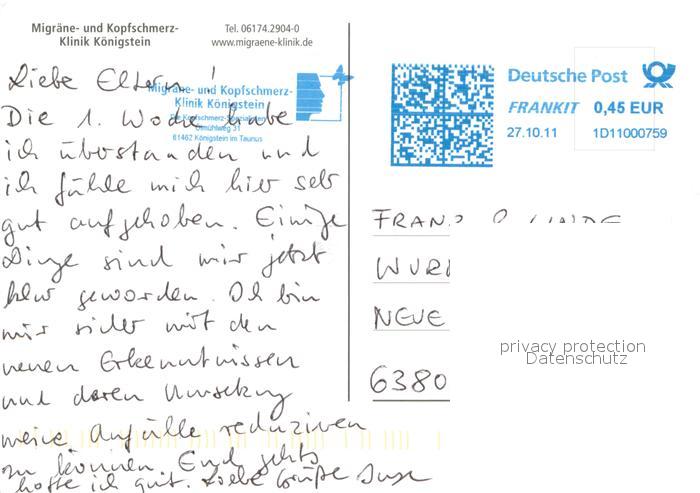 Migräne- und Kopfschmerz-
Klinik Königstein
Tel. 06174.2904-0
www.migraene-klinik.de
Migräne- und Kopfschmerz-
Klinik Königstein
Ölmühlweg 31
61462 Königstein im Taunus
Deutsche Post
FRANKIT 0,45 EUR
27.10.11 1D11000759
Liebe Eltern!
Die 1. Woche habe
ich überstanden und
ich fühle mich hier sehr
gut aufgehoben. Einige
Dinge sind mir jetzt
klar geworden. Ich bin
mir sicher mit den
neuen Erkenntnissen
und deren Umsetzung
meine Anfälle reduzieren
zu können. Euch gehts
hoffe ich gut. Liebe Grüße
FRANZ
WUR
NEUE
6380
privacy protection
Datenschutz